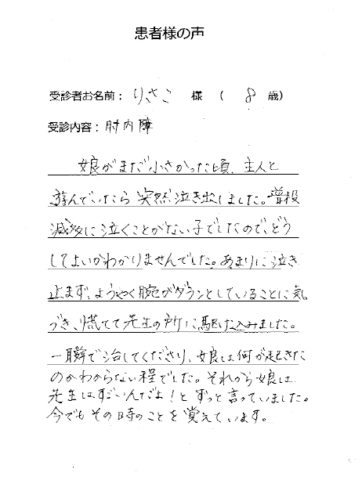 患者様の声
受診者お名前： りさこ 様 （ 8 歳）
受診内容：肘内障
娘がまだ小さかった頃、主人と
遊んでいたら突然泣き出しました。普段
滅多に泣くことがない子でしたので、どう
してよいかわかりませんでした。あまりに泣き
止まず、ようやく腕がダランとしていることに気
づき、慌てて先生の所に駆け込みました。
一瞬で治してくださり、娘は何が起きた
のかわからない程でした。それから娘は
先生はすごいんだよ！とずっと言っていました。
今でもその時のことを覚えています。